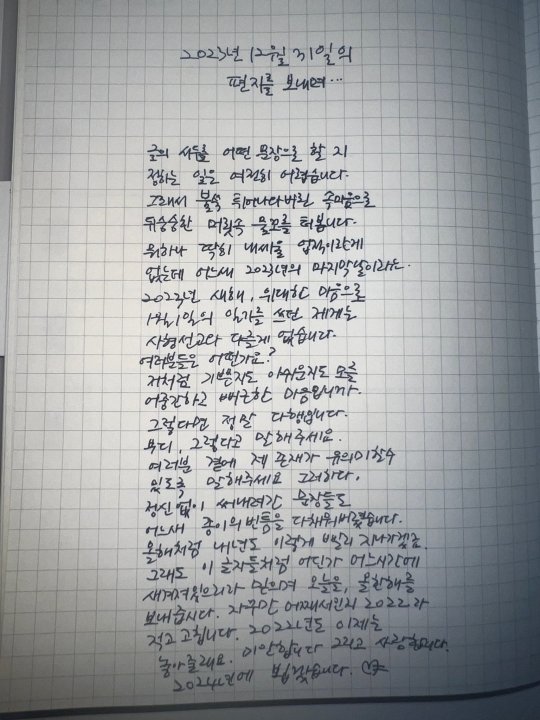 2023년 12월 31일의
편지를 보내며...
글의 서두를 어떤 문장으로 할 지
정하는 일은 여전히 어렵습니다.
그래서 불쑥 튀어나와버린 속마음으로
뒤숭숭한 머릿속 물꼬를 터봅니다.
뭐하나 딱히 내세울 업적이랄게
없는데 어느새 2023년의 마지막날이라뇨.
2023년 새해, 위대한 마음으로
1월 1일의 일기를 쓰던 제게는
사형선고와 다를게 없습니다.
여러분들은 어떤가요?
저처럼 기쁜지도 아쉬운지도 모를
어중간하고 빠근한 마음입니까.
그렇다면 정말 다행입니다.
부디, 그렇다고 말해주세요.
여러분 곁에 제 존재가 유의미할수
있도록 말해주세요 그러하다,
정신없이 써내려간 문장들도
어느새 종이의 빈틈을 다채워버렸습니다.
올해처럼 내년도 이렇게 빨리 지나가겠죠.
그래도 이 글자들처럼 어딘가 어느시간에
새겨져있으리라 믿으며 오늘을, 올한해를
보내줍시다. 자꾸만 어째서인지 2022라
적고 고칩니다. 2022년도 이제는
놓아줄래요. 미안합니다 그리고 사랑합니다.
2024년에 뵙겠습니다. ♡